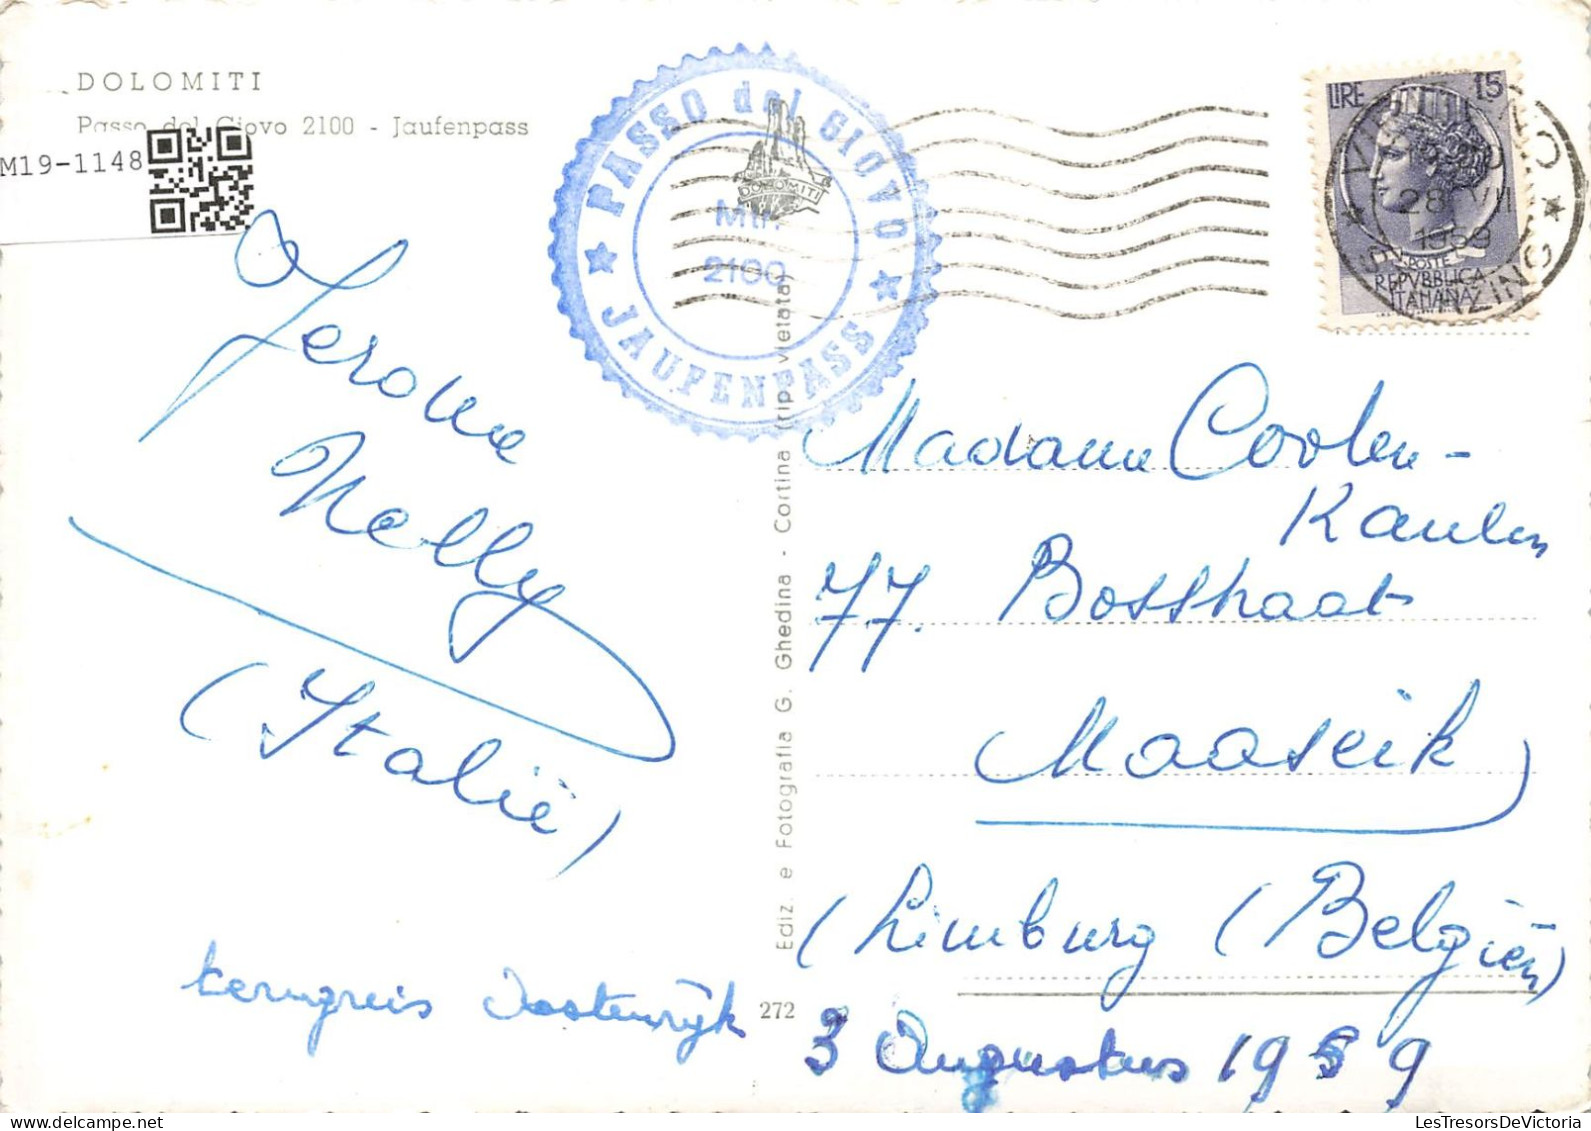 DOLOMITI
Passo del Giovo 2100 - Jaufenpass
M19-1148
PASSO del GIOVO
DOLOMITI
Mtr.
2100
JAUFENPASS
LIRE 15
POSTE
REPVBBLICA
ITALIANA
28 VII
1959
Jerome
Nelly
(Italië)
terugreis Oostenrijk
Ediz. e Fotografia G. Ghedina - Cortina (rip. vietata)
272
Madame Coolen-
Kaulen
77. Bosstraat
Maaseik
(Limburg (Belgiën)
3 Augustus 1959
LesTresorsDeVictoria